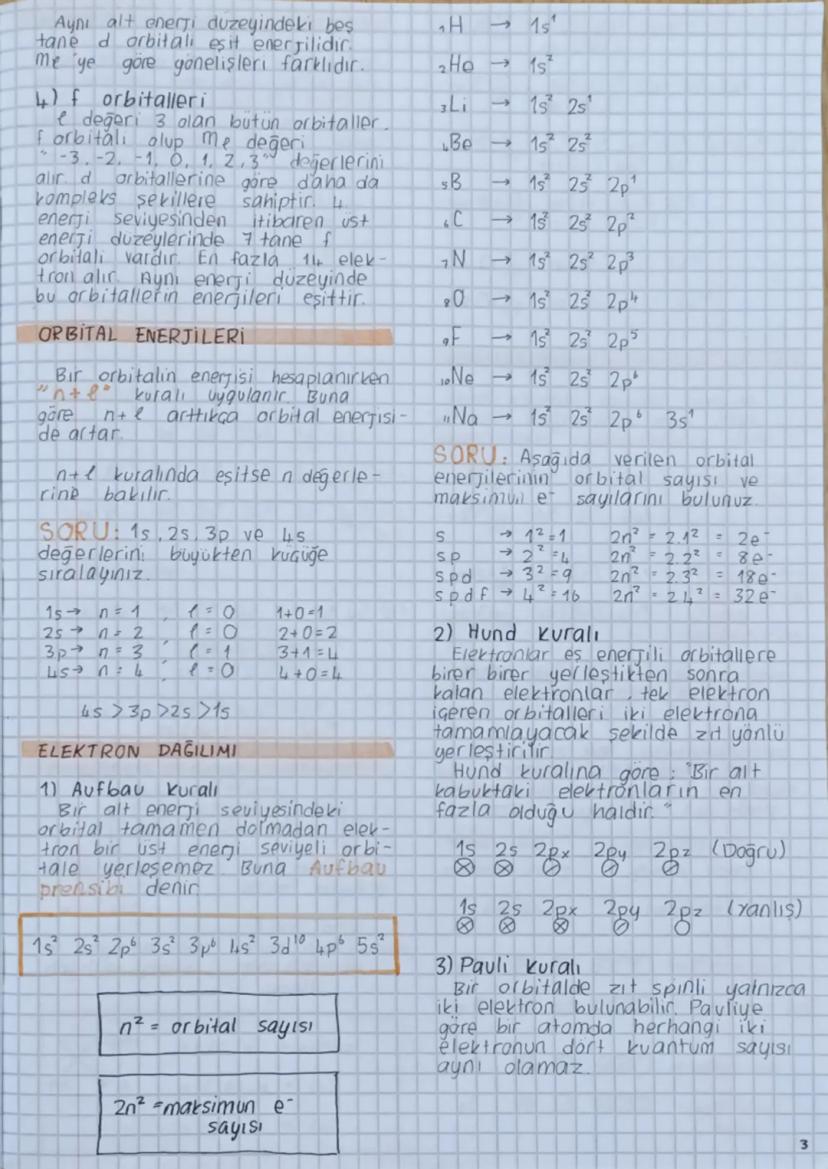 Aynı alt enerji düzeyindeki beş
tane d orbitali eşit enerjilidir.
mℓ 'ye göre yönelişleri farklıdır.
4) f orbitalleri
ℓ değeri 3 olan bütün orbitaller.
f orbitali olup mℓ değeri
" -3, -2, -1, 0, 1, 2, 3" değerlerini
alır. d orbitallerine göre daha da
kompleks şekillere sahiptir. 4.
enerji seviyesinden itibaren üst
enerji düzeylerinde 7 tane f
orbitali vardır. En fazla 14 elek-
tron alır. Aynı enerji düzeyinde
bu orbitallerin enerjileri eşittir.
ORBİTAL ENERJİLERİ
Bir orbitalin enerjisi hesaplanırken
"n+ℓ" kuralı uygulanır. Buna
göre n+ℓ arttıkça orbital enerjisi-
de artar.
n+ℓ kuralında eşitse n değerle-
rine bakılır.
SORU: 1s, 2s, 3p ve 4s
değerlerini büyükten küçüğe
sıralayınız.
1s → n = 1 , ℓ = 0 1+0=1
2s → n = 2 , ℓ = 0 2+0=2
3p → n = 3 , ℓ = 1 3+1=4
4s → n = 4 , ℓ = 0 4+0=4
4s >3p >2s >1s
ELEKTRON DAĞILIMI
1) Aufbau kuralı
Bir alt enerji seviyesindeki
orbital tamamen dolmadan elek-
tron bir üst enerji seviyeli orbi-
tale yerleşemez. Buna Aufbau
prensibi denir.
1s² 2s² 2p⁶ 3s² 3p⁶ 4s² 3d¹⁰ 4p⁶ 5s²
n² = orbital sayısı
2n² = maksimun e⁻
sayısı
₁H → 1s¹
₂He → 1s²
₃Li → 1s² 2s¹
₄Be → 1s² 2s²
₅B → 1s² 2s² 2p¹
₆C → 1s² 2s² 2p²
₇N → 1s² 2s² 2p³
₈O → 1s² 2s² 2p⁴
₉F → 1s² 2s² 2p⁵
₁₀Ne → 1s² 2s² 2p⁶
₁₁Na → 1s² 2s² 2p⁶ 3s¹
SORU: Aşağıda verilen orbital
enerjilerinin orbital sayısı ve
maksimun e⁻ sayılarını bulunuz.
s → 1²=1 2n² = 2.1² = 2e⁻
sp → 2²=4 2n² = 2.2² = 8e⁻
spd → 3²=9 2n² = 2.3² = 18e⁻
spdf → 4²=16 2n² = 2.4² = 32e⁻
2) Hund kuralı
Elektronlar eş enerjili orbitallere
birer birer yerleştikten sonra
kalan elektronlar, tek elektron
içeren orbitalleri iki elektrona
tamamlayacak şekilde zıt yönlü
yerleştirilir.
Hund kuralına göre ; "Bir alt
kabuktaki elektronların en
fazla olduğu haldir."
1s 2s 2px 2py 2pz (Doğru)
1s 2s 2px 2py 2pz (Yanlış)
3) Pauli kuralı
Bir orbitalde zıt spinli yalnızca
iki elektron bulunabilir. Pauliye
göre bir atomda herhangi iki
elektronun dört kuantum sayısı
aynı olamaz.
3